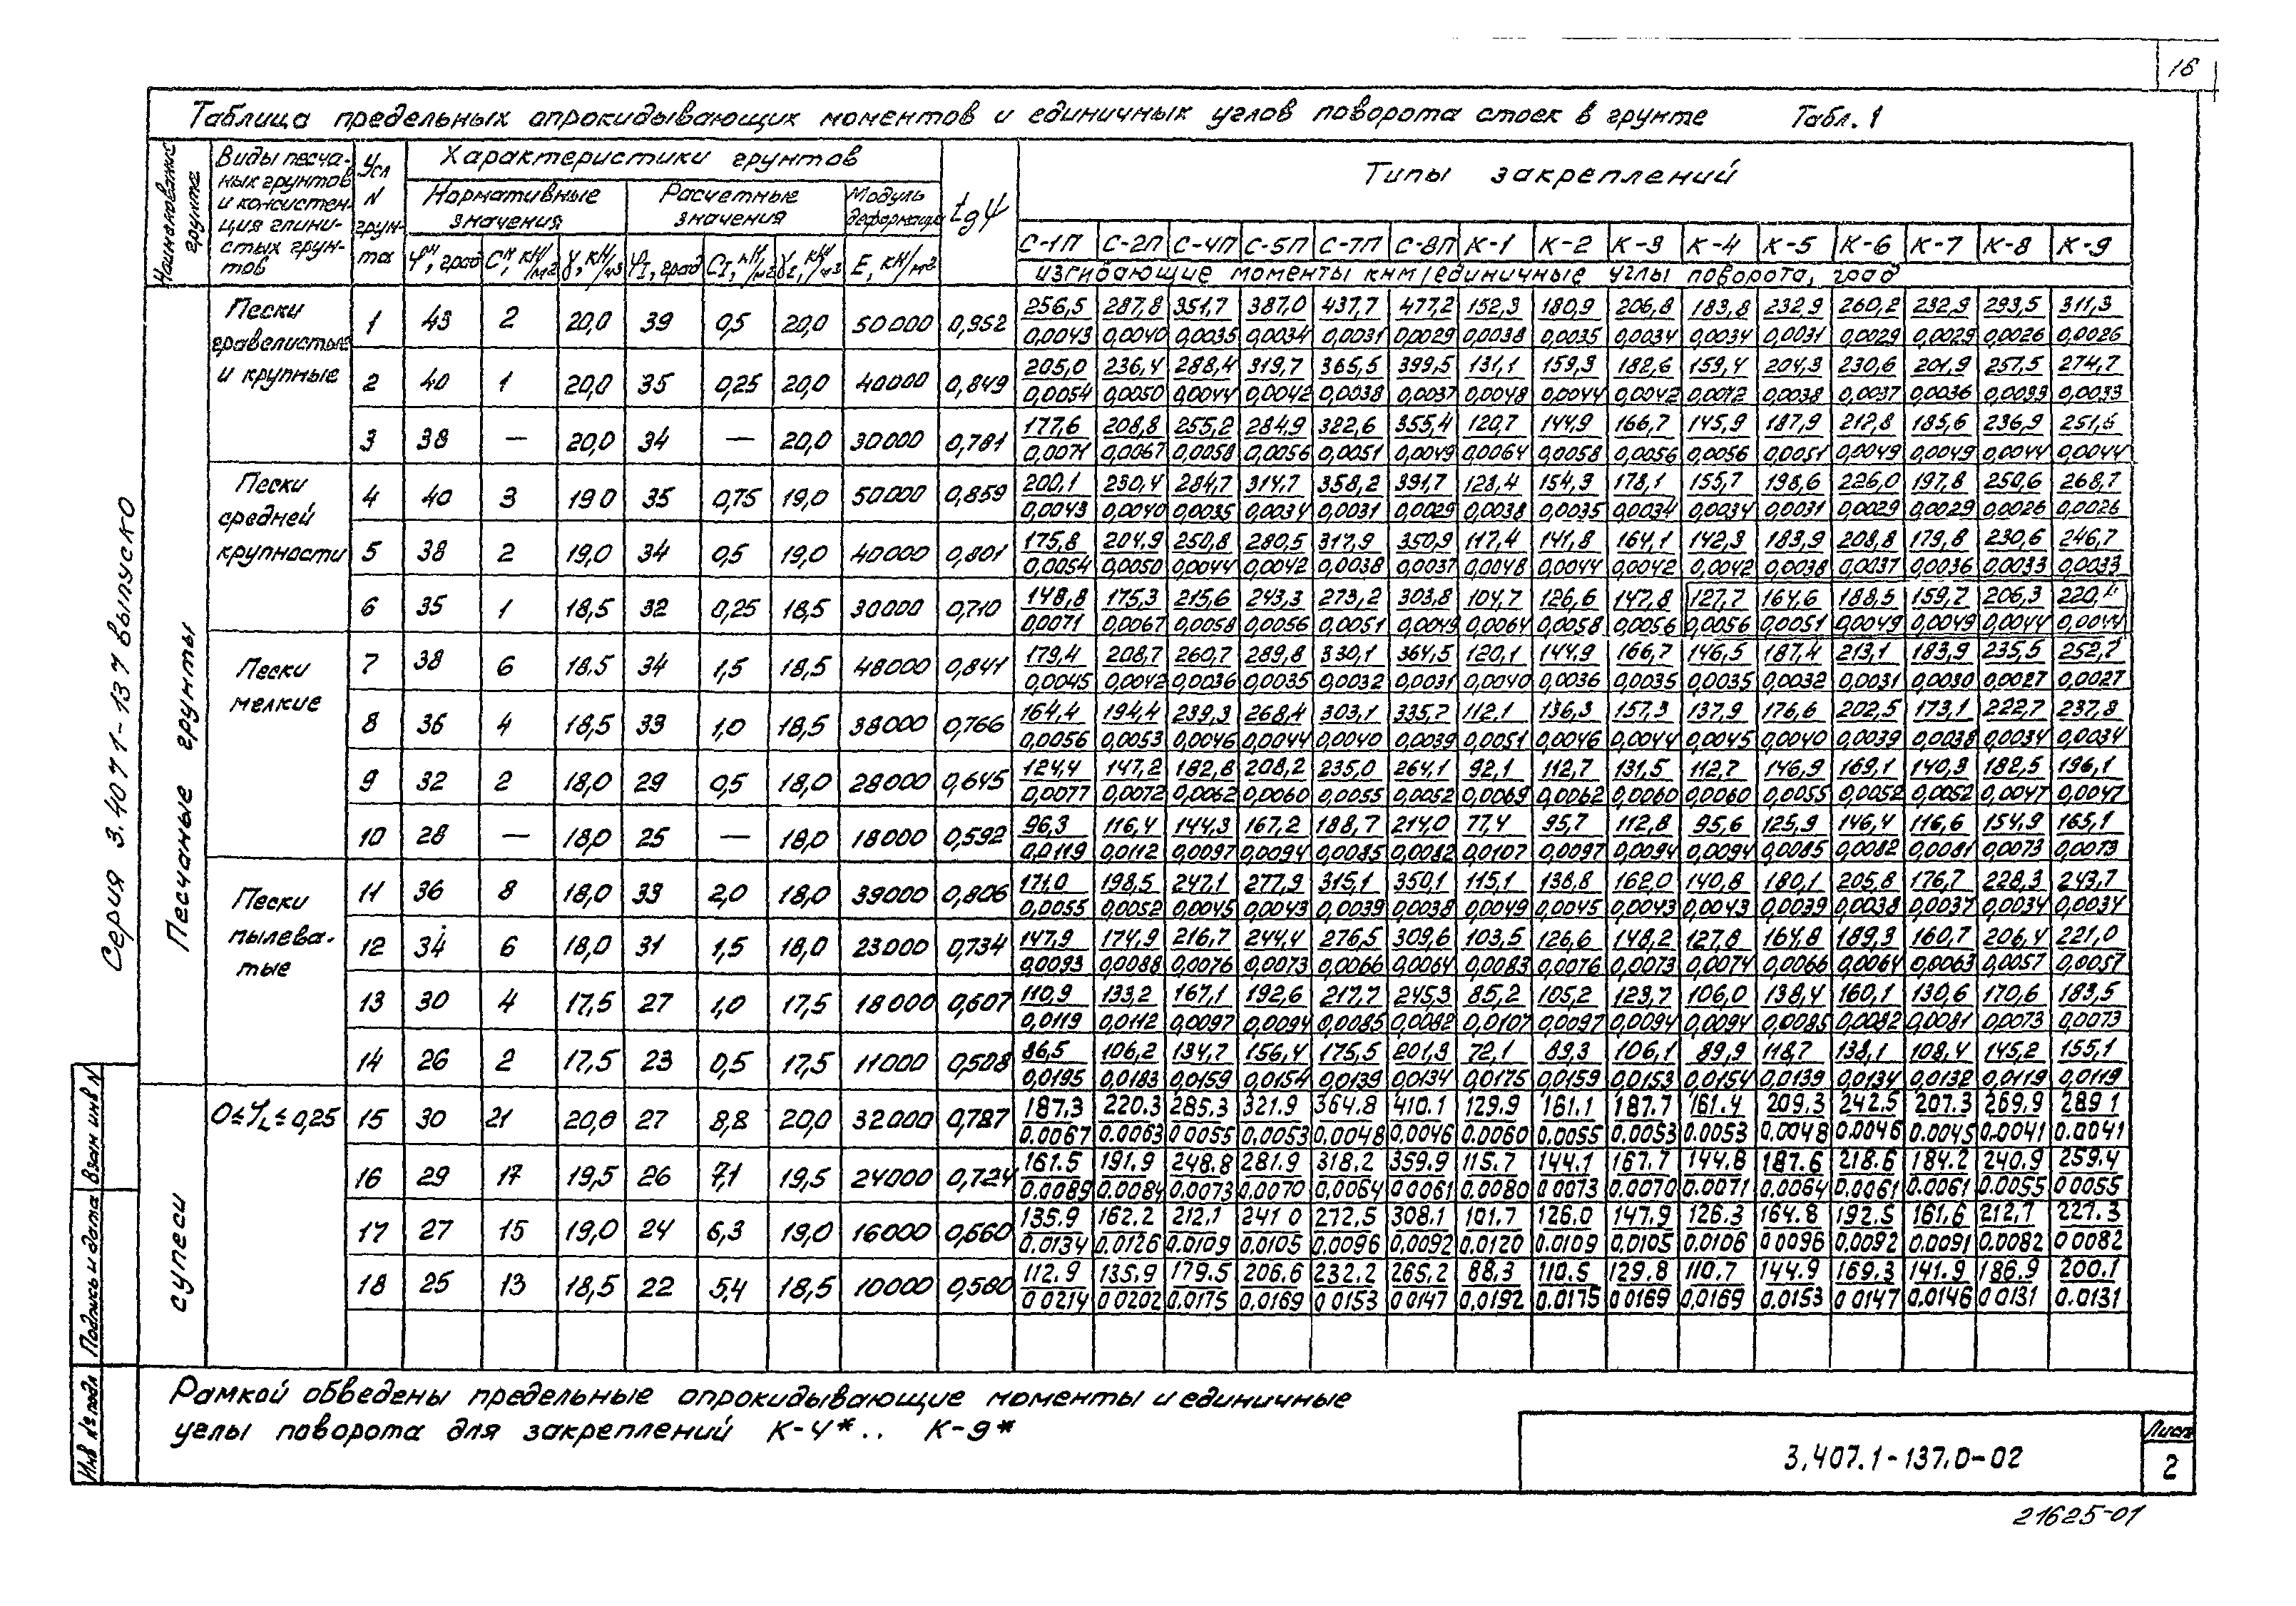 18
Таблица предельных опрокидывающих моментов и единичных углов поворота стоек в грунте Табл. 1
Наименование грунта
Виды песчаных грунтов и консистенция глинистых грунтов
Усл N грунта
Характеристики грунтов
Нормативные значения
Расчетные значения
Модуль деформации
tgψ
Типы закреплений
φн, град Сн, кН/м2 γ, кН/м3 φI, град СI, кН/м2 γI, кН/м3 Е, кН/м2
С-1П С-2П С-4П С-5П С-7П С-8П К-1 К-2 К-3 К-4 К-5 К-6 К-7 К-8 К-9
изгибающие моменты кнм/единичные углы поворота, град
Песчаные грунты
Пески гравелистые и крупные
1 43 2 20,0 39 0,5 20,0 50000 0,952 256,5 287,8 351,7 387,0 437,7 477,2 152,3 180,9 206,8 183,8 232,9 260,2 232,9 293,5 311,3
0,0043 0,0040 0,0035 0,0034 0,0031 0,0029 0,0038 0,0035 0,0034 0,0034 0,0031 0,0029 0,0029 0,0026 0,0026
2 40 1 20,0 35 0,25 20,0 40000 0,849 205,0 236,4 288,4 319,7 365,5 399,5 131,1 159,3 182,6 159,4 204,3 230,6 201,9 257,5 274,7
0,0054 0,0050 0,0044 0,0042 0,0038 0,0037 0,0048 0,0044 0,0042 0,0042 0,0038 0,0037 0,0036 0,0033 0,0033
3 38 — 20,0 34 — 20,0 30000 0,781 177,6 208,8 255,2 284,9 322,6 355,4 120,7 144,9 166,7 145,9 187,9 212,8 185,6 236,9 251,6
0,0071 0,0067 0,0058 0,0056 0,0051 0,0049 0,0064 0,0058 0,0056 0,0056 0,0051 0,0049 0,0049 0,0044 0,0044
Пески средней крупности
4 40 3 19 0 35 0,75 19,0 50000 0,859 200,1 230,4 284,7 314,7 358,2 391,7 128,4 154,3 178,1 155,7 198,6 226,0 197,8 250,6 268,7
0,0043 0,0040 0,0035 0,0034 0,0031 0,0029 0,0038 0,0035 0,0034 0,0034 0,0031 0,0029 0,0029 0,0026 0,0026
5 38 2 19,0 34 0,5 19,0 40000 0,801 175,8 204,9 250,8 280,5 317,9 350,9 117,4 141,8 164,1 142,3 183,9 208,8 179,8 230,6 246,7
0,0054 0,0050 0,0044 0,0042 0,0038 0,0037 0,0048 0,0044 0,0042 0,0042 0,0038 0,0037 0,0036 0,0033 0,0033
6 35 1 18,5 32 0,25 18,5 30000 0,710 148,8 175,3 215,6 243,3 273,2 303,8 104,7 126,6 147,8 127,7 164,6 188,5 159,2 206,3 220,4
0,0071 0,0067 0,0058 0,0056 0,0051 0,0049 0,0064 0,0058 0,0056 0,0056 0,0051 0,0049 0,0049 0,0044 0,0044
Пески мелкие
7 38 6 18,5 34 1,5 18,5 48000 0,841 179,4 208,7 260,7 289,8 330,1 364,5 120,1 144,9 166,7 146,5 187,4 213,1 183,9 235,5 252,7
0,0045 0,0042 0,0036 0,0035 0,0032 0,0031 0,0040 0,0036 0,0035 0,0035 0,0032 0,0031 0,0030 0,0027 0,0027
8 36 4 18,5 33 1,0 18,5 38000 0,766 164,4 194,4 239,3 268,4 303,1 335,7 112,1 136,3 157,3 137,9 176,6 202,5 173,1 222,7 237,8
0,0056 0,0053 0,0046 0,0044 0,0040 0,0039 0,0051 0,0046 0,0044 0,0045 0,0040 0,0039 0,0038 0,0034 0,0034
9 32 2 18,0 29 0,5 18,0 28000 0,645 124,4 147,2 182,8 208,2 235,0 264,1 92,1 112,7 131,5 112,7 146,9 169,1 140,3 182,5 196,1
0,0077 0,0072 0,0062 0,0060 0,0055 0,0052 0,0069 0,0062 0,0060 0,0060 0,0055 0,0052 0,0052 0,0047 0,0047
10 28 — 18,0 25 — 18,0 18000 0,592 96,3 116,4 144,3 167,2 188,7 214,0 77,4 95,7 112,8 95,6 125,9 146,4 116,6 154,9 165,1
0,0119 0,0112 0,0097 0,0094 0,0085 0,0082 0,0107 0,0097 0,0094 0,0094 0,0085 0,0082 0,0081 0,0073 0,0073
Пески пылева- тые
11 36 8 18,0 33 2,0 18,0 39000 0,806 171,0 198,5 247,1 277,9 315,1 350,1 115,1 138,8 162,0 140,8 180,1 205,8 176,7 228,3 243,7
0,0055 0,0052 0,0045 0,0043 0,0039 0,0038 0,0049 0,0045 0,0043 0,0043 0,0039 0,0038 0,0037 0,0034 0,0034
12 34 6 18,0 31 1,5 18,0 23000 0,734 147,9 174,9 216,7 244,4 276,5 309,6 103,5 126,6 148,2 127,8 164,8 189,3 160,7 206,4 221,0
0,0093 0,0088 0,0076 0,0073 0,0066 0,0064 0,0083 0,0076 0,0073 0,0074 0,0066 0,0064 0,0063 0,0057 0,0057
13 30 4 17,5 27 1,0 17,5 18000 0,607 110,9 133,2 167,1 192,6 217,7 245,3 85,2 105,2 123,7 106,0 138,4 160,1 130,6 170,6 183,5
0,0119 0,0112 0,0097 0,0094 0,0085 0,0082 0,0107 0,0097 0,0094 0,0094 0,0085 0,0082 0,0081 0,0073 0,0073
14 26 2 17,5 23 0,5 17,5 11000 0,508 86,5 106,2 134,7 156,4 175,5 201,3 72,1 89,3 106,1 89,9 118,7 138,1 108,4 145,2 155,1
0,0195 0,0183 0,0159 0,0154 0,0139 0,0134 0,0175 0,0159 0,0153 0,0154 0,0139 0,0134 0,0132 0,0119 0,0119
супеси
0≤IL≤0,25
15 30 21 20,0 27 8,8 20,0 32000 0,787 187.3 220.3 285.3 321.9 364.8 410.1 129.9 161.1 187.7 161.4 209.3 242.5 207.3 269.9 289 1
0.0067 0.0063 0 0055 0.0053 0.0048 0,0046 0.0060 0.0055 0.0053 0.0053 0.0048 0.0046 0.0045 0.0041 0.0041
16 29 17 19,5 26 7,1 19,5 24000 0,724 161.5 191.9 248.8 281.9 318.2 359.9 115.7 144.1 167.7 144.8 187.6 218.6 184.2 240.9 259.4
0.0089 0.0084 0.0073 0.0070 0.0064 0 0061 0.0080 0 0073 0.0070 0.0071 0.0064 0.0061 0.0061 0.0055 0 0055
17 27 15 19,0 24 6,3 19,0 16000 0,660 135.9 162.2 212.1 241 0 272.5 308.1 101.7 126.0 147.9 126.3 164.8 192.5 161.6 212.7 227.3
0.0134 0.0126 0.0109 0.0105 0.0096 0.0092 0.0120 0.0109 0.0105 0.0106 0 0096 0.0092 0.0091 0.0082 0 0082
18 25 13 18,5 22 5,4 18,5 10000 0,580 112.9 135.9 179.5 206.6 232.2 265.2 88.3 110.5 129.8 110.7 144.9 169.3 141.9 186.9 200.1
0 0214 0 0202 0.0175 0.0169 0 0153 0 0147 0.0192 0.0175 0 0169 0.0169 0.0153 0 0147 0.0146 0 0131 0.0131
Рамкой обведены предельные опрокидывающие моменты и единичные
углы поворота для закреплений К-4*.. К-9*
3.407.1-137.0-02
Лист
2
21625-01
Серия 3.407 1-137 выпуск 0
Взам инв N
Подпись и дата
Инв № подл